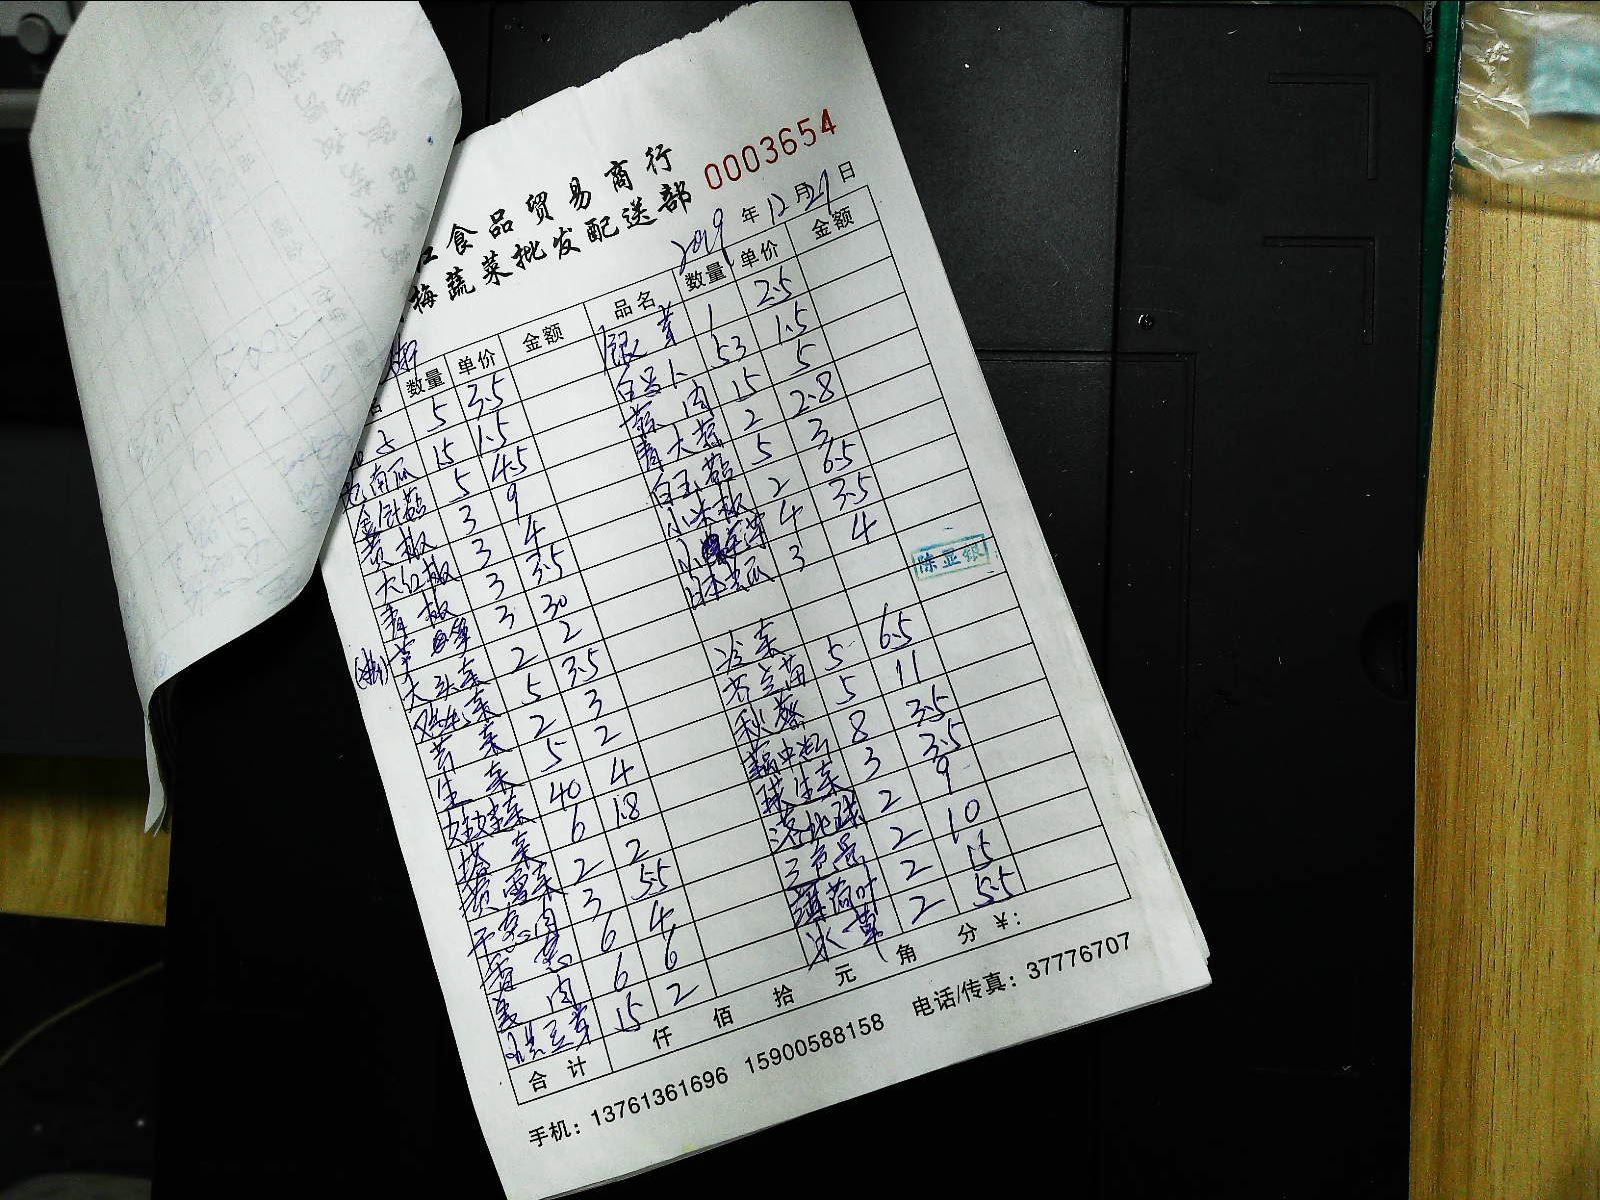 江食品贸易商行
梅蔬菜批发配送部
0003654
2019年12月29日
数量 单价 金额 品名 数量 单价 金额
5 3.5 银芽 1 2.5
南瓜 15 1.5 白萝卜 53 1.5
金针菇 5 4.5 蒜肉 15 5
黄椒 3 9 青大蒜 2 2.8
大红椒 3 4 白玉菇 5 3
青椒 3 3.5 小米椒 2 6.5
3 30 小 4 3.5
大头菜 2 2 日本黄瓜 3 4
5 3.5
陈亚银
芹菜 2 3 冷菜
生菜 5 2 苗 5 6.5
40 4 秋葵 5 11
塔菜 6 1.8 8 3.5
2 2 球生菜 3 3.5
干葱肉 3 5.5 2 9
香葱 6 4 三色堇 2 10
姜肉 6 6 薄荷叶 2 15
黄豆芽 15 2 冰草 2 5.5
合计 仟 佰 拾 元 角 分 ¥:
手机：13761361696 15900588158 电话/传真：37776707